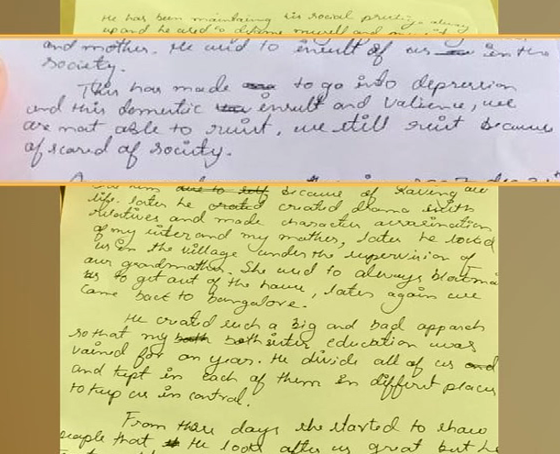 He has been maintaining his social prestige always
up and he used to blame myself and my
and mother. He used to insult of us in the
society.
This has made to go into depression
and this domestic insult and Valience, we
are mot able to ruist, we still ruist because
of scared of society.
because of having
life. later he created drama with
relatives and made character assasination
of my sister and my mother, later he
us in the village under the supervision of
our grandmother. She used to always
us to get out of the house, later again we
came back to bangalore.
He created such a big and bad
so that my both sister education was
vained for on year. He divide all of us and
and kept in each of them in differnt places
to keep us in control.
From these days she started to show
people that He look after us great but he